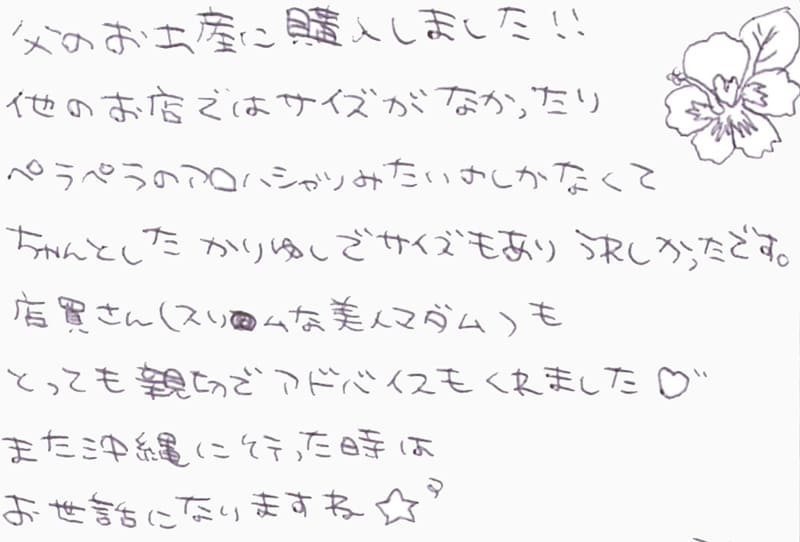 父のお土産に購入しました!!
他のお店ではサイズがなかったり
ペラペラのアロハシャツみたいのしかなくて
ちゃんとしたかりゆしでサイズもあり うれしかったです。
店員さん(スリムな美人マダム)も
とっても親切でアドバイスもくれました♡
また沖縄に行った時は
お世話になりますね☆